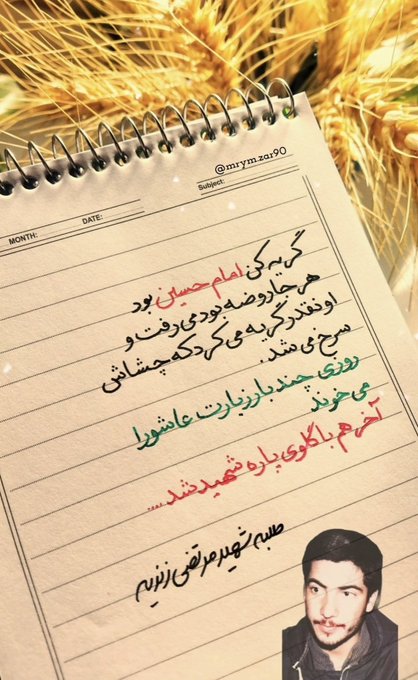 @mrym.zar90
MONTH: DATE: Subject:
گریه کن امام حسین بود
هر جا روضه بود می رفت و
اونقدر گریه می کرد که چشاش
سرخ می شد.
روزی چند بار زیارت عاشورا
می خوند
آخر هم با گلوی پاره شهید شد....
طلبه شهید مرتضی زندیه